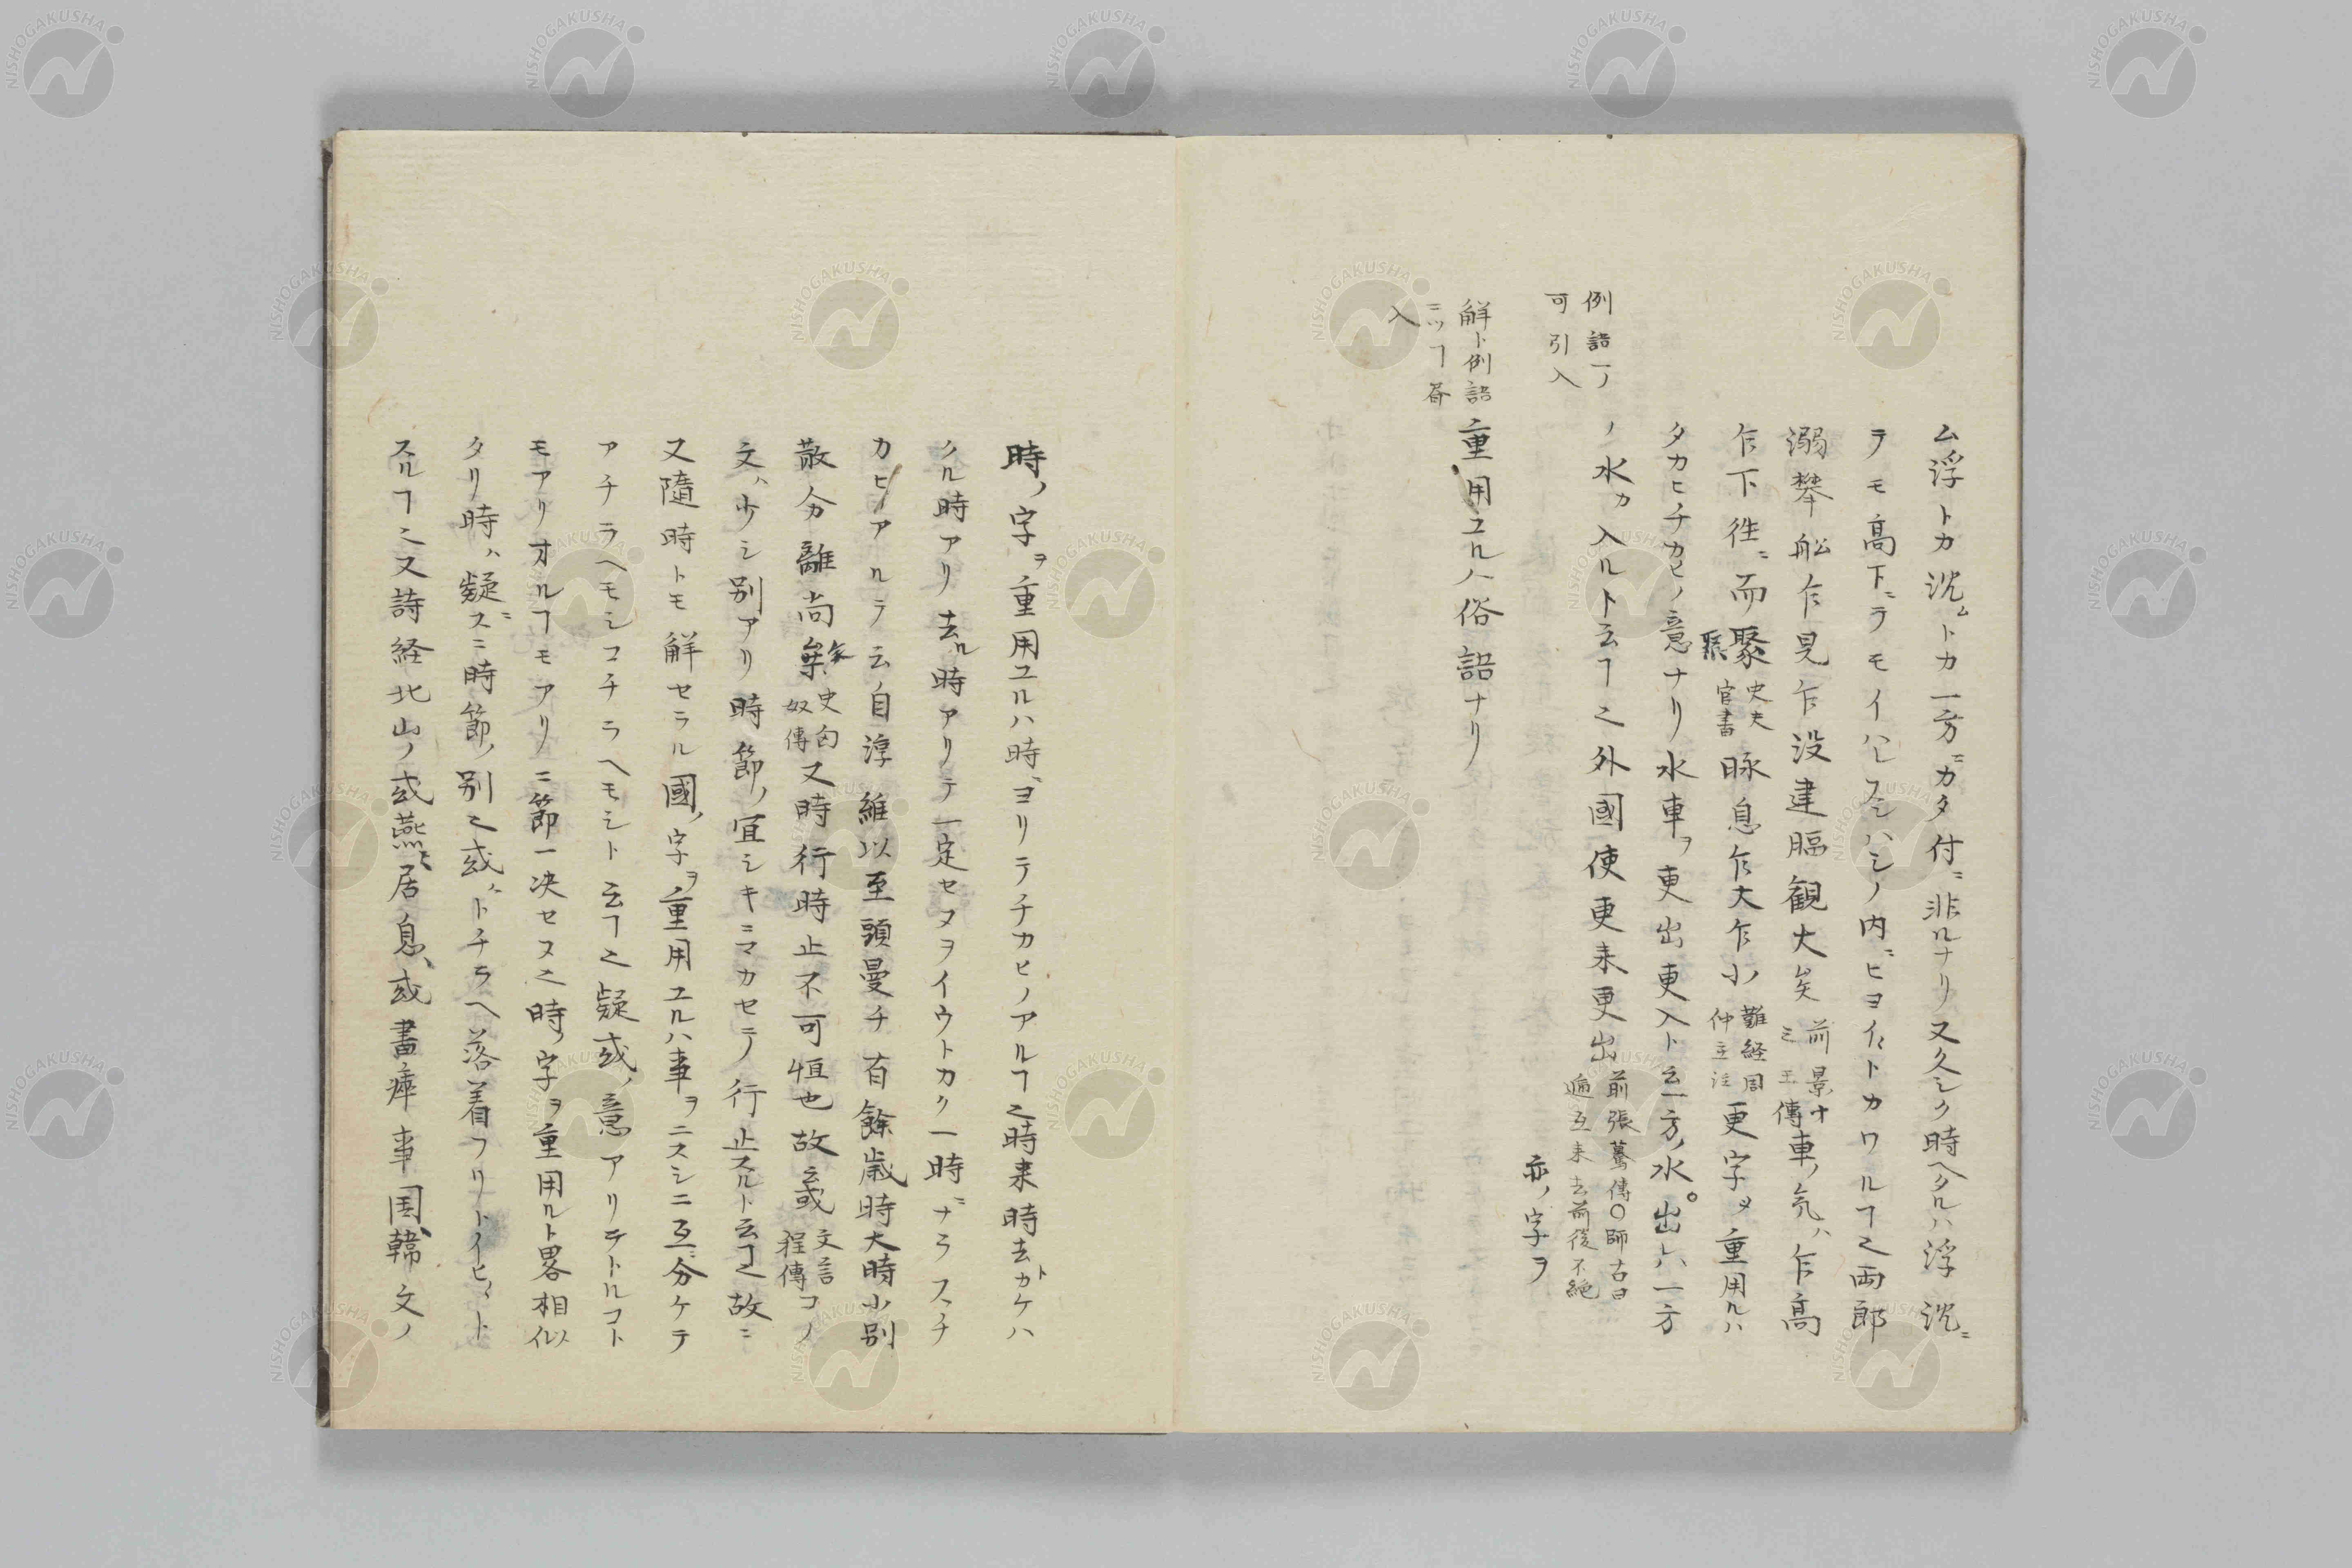 ム浮トカ沈ムトカ一方ニカタ付ニ非ルナリ又久シク時ヘタルハ浮沈ニ
テモ高下ニテモイハレスシハシノ内ニヒヨイヒヨイトカワルヿ之両郎
溺攀舩乍見乍没建臨観大矣前景十三王傳車ノ気ハ乍高
乍下徃ニ而聚聚史天官書眽息乍大乍小難経周仲立注更字ヲ重用ルハ
タカヒチカヒノ意ナリ水車ヲ更出更入ト云一方ノ水。出レハ一方
例語一ノ
可引入
ノ水カ入ルト云ヿ之外國使更来更出前張騫傳〇師古曰逓互来去前後不絶
亦ノ字ヲ
解ト例語
ニツヿ脊
入
重用ユルハ俗語ナリ
時ノ字ヲ重用ユルハ時ニヨリテチカヒノアルヿ之時来時去トカケハ
ノル時アリ去ル時アリテ一定セヌヲイウトカク一時ニナラスチ
カヒノアルヲ云自淳維以至頭曼千有餘歳時大時小別
散分離尚矣史匈奴傳又時行時止不可恒也故或文言程傳コノ
文ハ少シ別アリ時節ノ宜シキニマカセテ行止スルト云ヿ之故ニ
又隨時トモ解セラル國ノ字ヲ重用ユルハ事ヲ二スシニ互ニ分ケテ
アチラヘモシコチラヘモシト云ヿ之疑或ノ意アリテトルコト
モアリオルヿモアリ二節一决セヌ之時ノ字ヲ重用ルト畧相似
タリ時ハ疑ニスニ時節ノ別之或ハトチラヘ落着フリトイヒイト
スルヿ之又詩経北山ノ或燕燕居息、或盡瘁事国韓文ノ